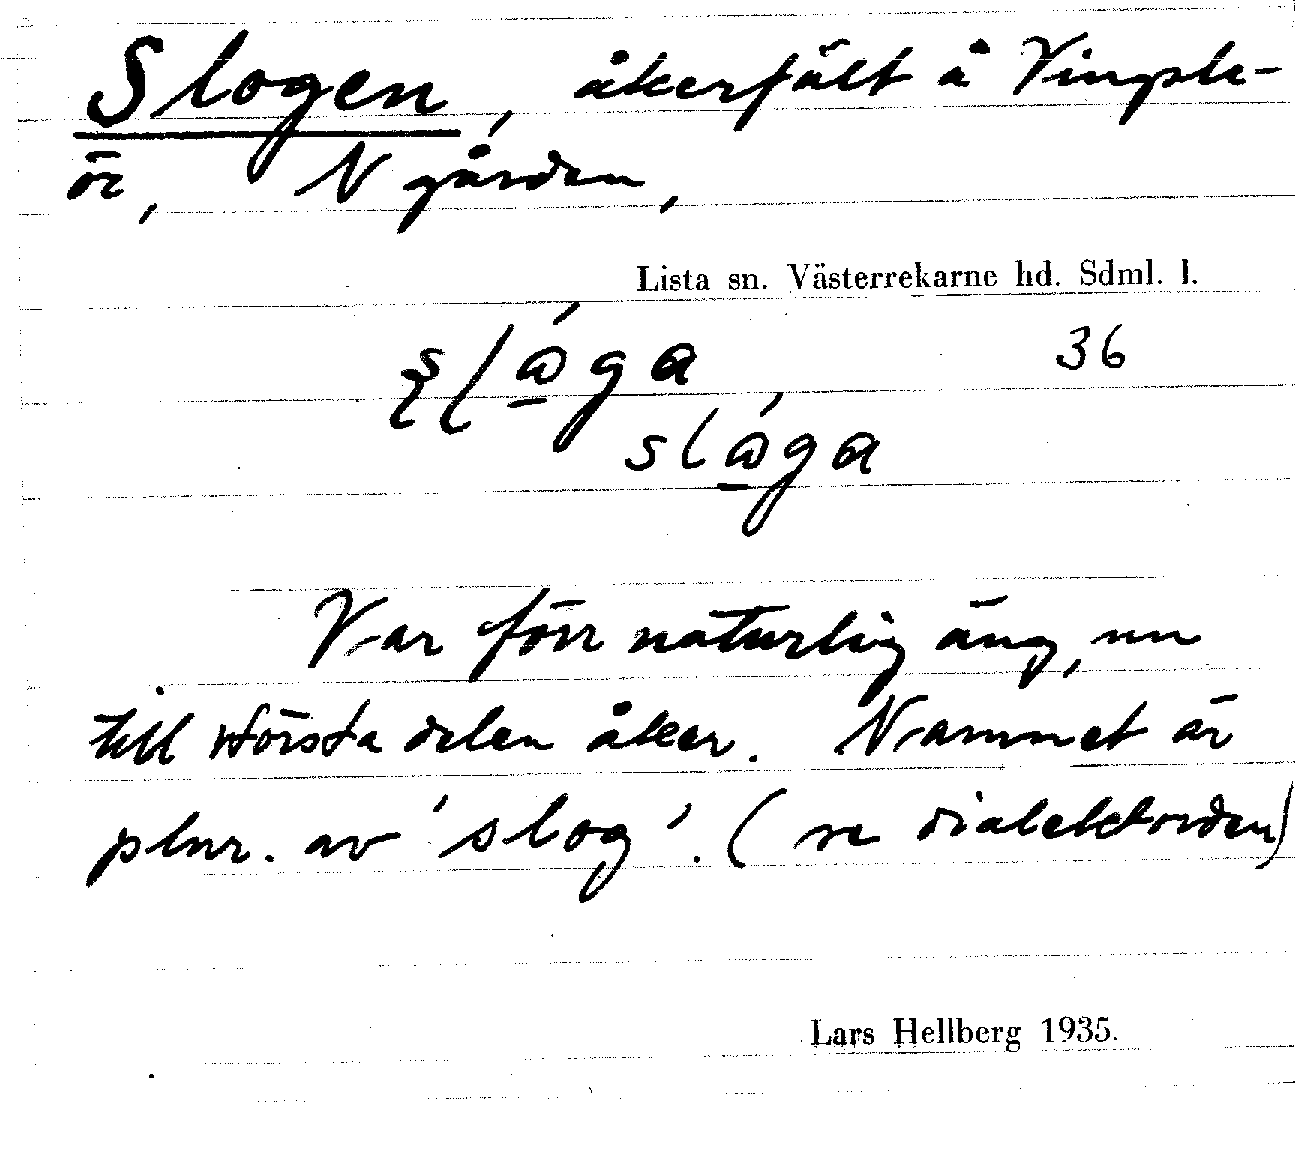 Slogen, åkerfält å Vingsle-
ör, N gården,
Lista sn. Västerrekarne hd. Sdml. l.
36
Var förr naturlig äng, nu
till största delen åker. Namnet är
plur. av 'slog'. (se dialektorden)
Lars Hellberg 1935.